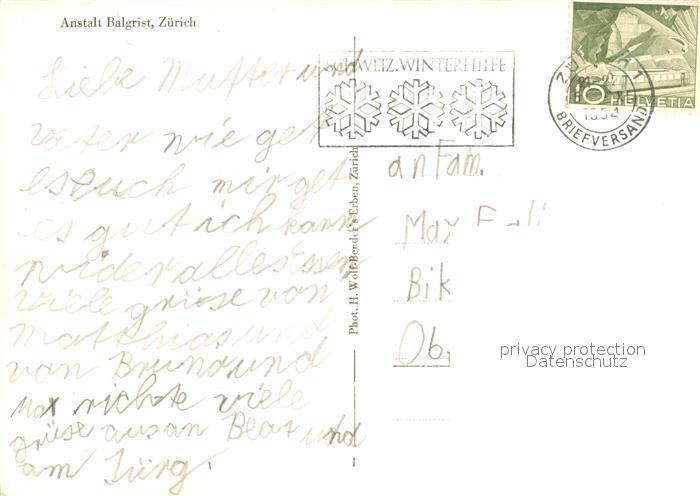 Anstalt Balgrist, Zürich
Liebe Mutter und
Vater wie get
es euch mir get
es gut ich kann
wider alles Essen
viele grüse von
Matthias und
von Brunound
Max richte viele
grüse aus an Beat und
am Jürg.
Phot. H. Wolf-Bender's Erben, Zürich
SCHWEIZ. WINTERHILFE
1954
BRIEFVERSAND
10 HELVETIA
an Fam.
Max
Bik
Ob.
privacy protection
Datenschutz